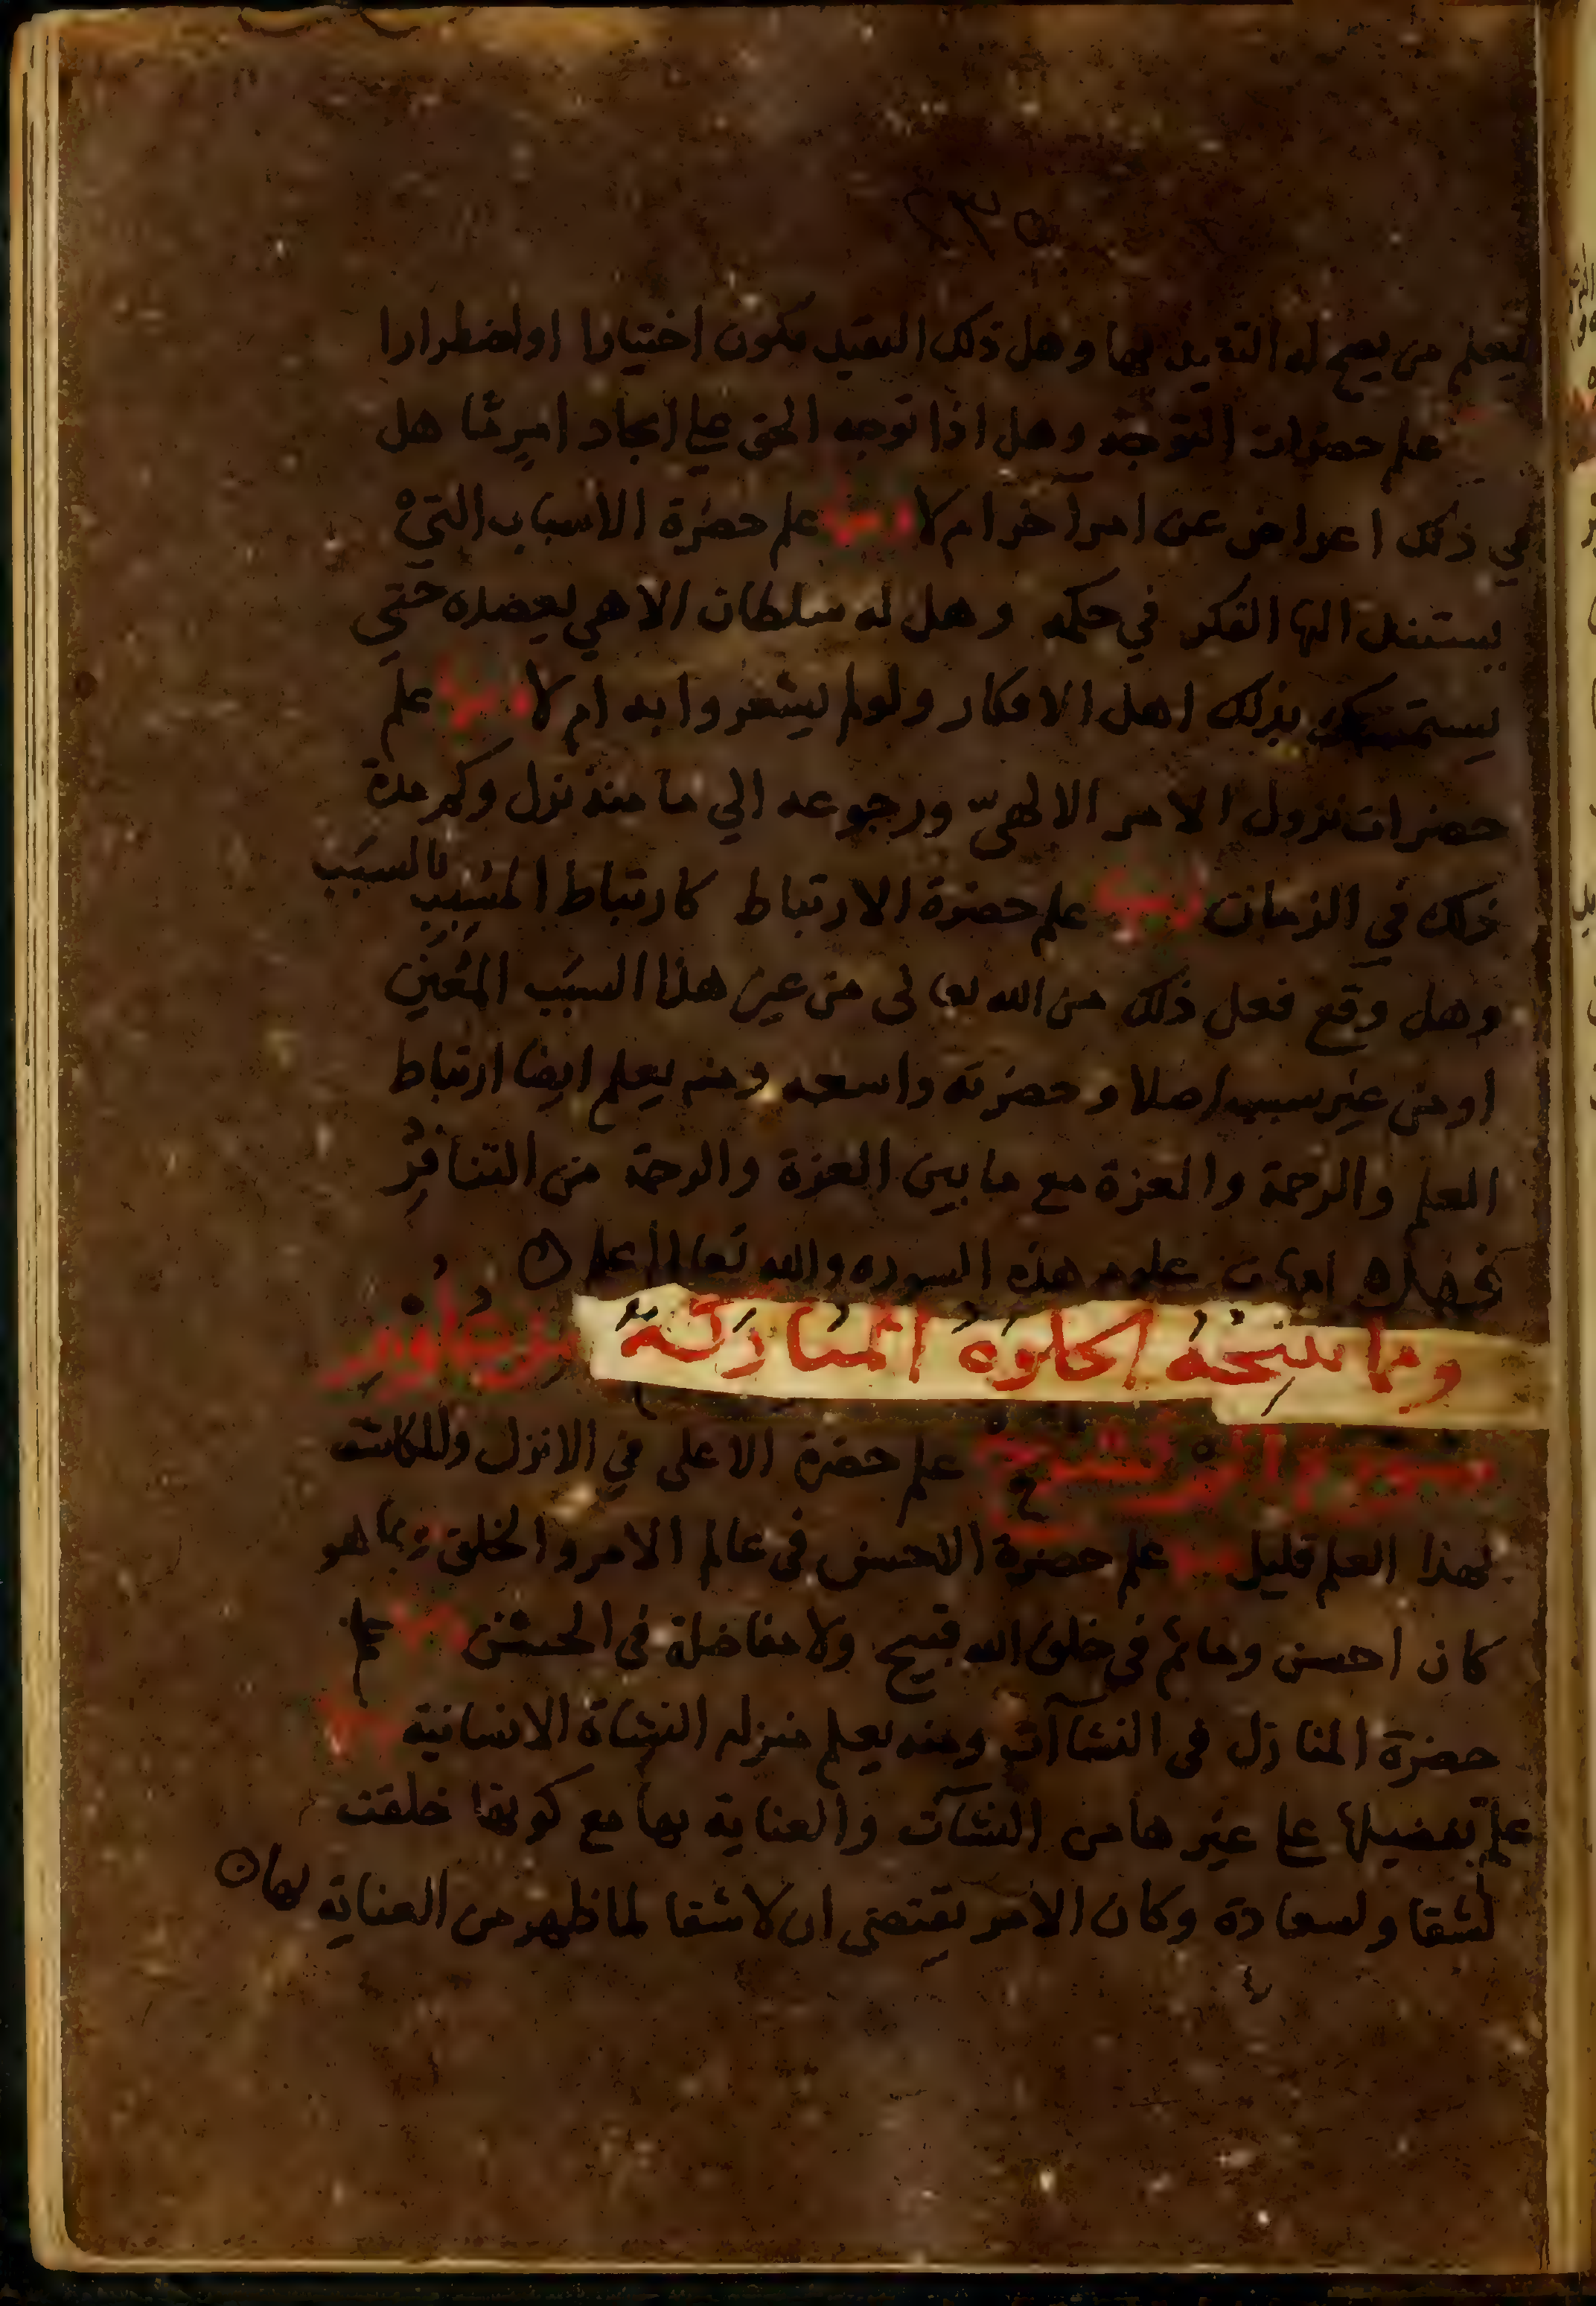 ٢٣٥
يعلم من يصح له التقييد بها وهل ذلك التقيد يكون اختيارا او اضطرارا
علم حضرات التوجه وهل اذا توجه الحق علي ايجاد امر ما هل
في ذلك اعراض عن امر اخر ام لا ومنها علم حضرة الاسباب التي
يستند اليها الفكر في حكمه وهل له سلطان الاهي يعضده حتي
يستمسك بذلك اهل الافكار ولو لم يشعروا به ام لا ومنها علم
حضرات نزول الامر الالهي ورجوعه الي ما منه نزل وكم مدة
ذلك في الزمان ومنها علم حضرة الارتباط كارتباط المسبب بالسبب
وهل وقع فعل ذلك من الله تعالى من عين هذا السبب المعين
او من غير سبب اصلا وحضرته واسعه ومنه يعلم ايضا ارتباط
العلم والرحمة والعزة مع ما بين العزة والرحمة من التنافر
فهذه امهات علوم هذه السوره والله تعالى اعلم
ومما تنتجه الخلوة المباركة من علوم
سورة الم نشرح علم حضرة الاعلى في الانزل والمكاشف
بهذا العلم قليل ومنها علم حضرة الاحسن في عالم الامر والخلق بما هو
كان احسن وما ثم في خلق الله قبيح ولا مفاضلة في الحسن ومنها علم
حضرة المنازل في النشاآت ومنه يعلم منزله النشاة الانسانية ومنها
علم تفضيلها على غيرها من النشآت والعناية بها مع كونها خلقت
لشقا ولسعادة وكان الامر يقتضي ان لا شقا لما ظهر من العناية بها